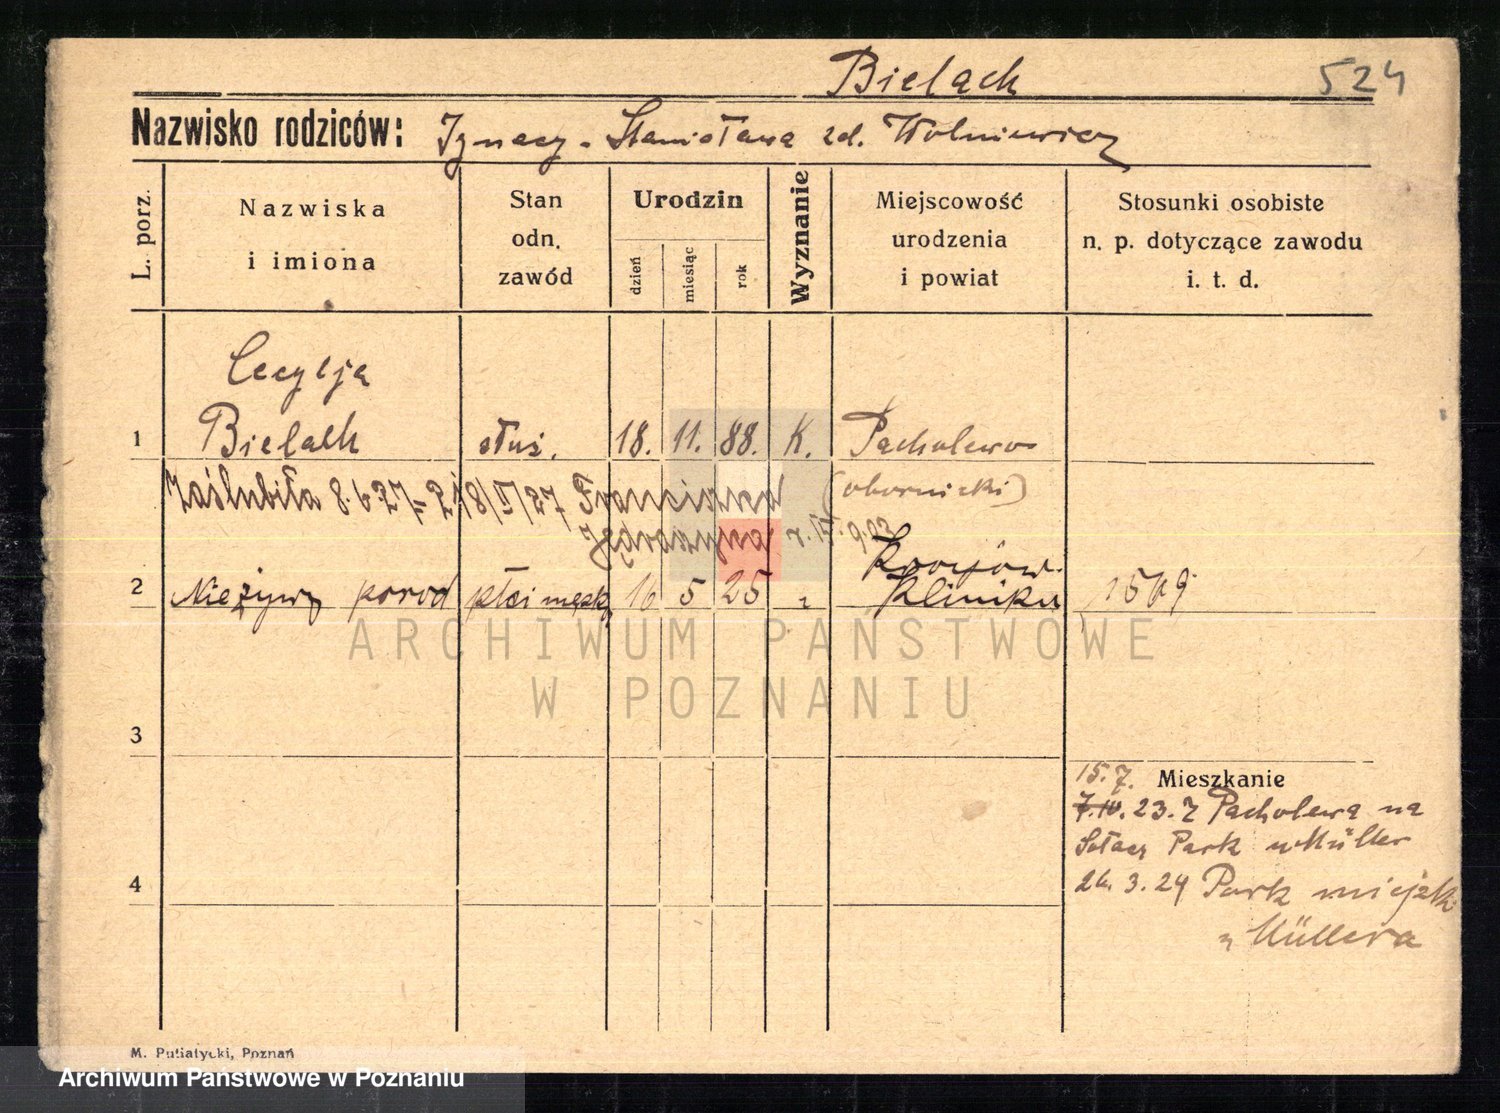 Bielach 524
Nazwisko rodziców: Ignacy - Stanisława zd. Wolniewicz
L. porz.
Nazwiska
i imiona
Stan
odn.
zawód
Urodzin
dzień
miesiąc
rok
Wyznanie
Miejscowość
urodzenia
i powiat
Stosunki osobiste
n. p. dotyczące zawodu
i. t. d.
Cecylja
1 Bielach służ. 18. 11. 88. K. Pacholewo
zaślubiła 8.6.27 Franciszka (obornicki)
r. 9.03
2 Nieżywy porod płci męsk. 16 5 25 "
Klinika
ARCHIWUM PAŃSTWOWE
W POZNANIU
3
15.7. Mieszkanie
7.IV. 23. z Pacholewa na
Sołacz Park u Müller
4
26. 3. 24 Park miejsk.
u Müllera
M. Putiatycki, Poznań
Archiwum Państwowe w Poznaniu